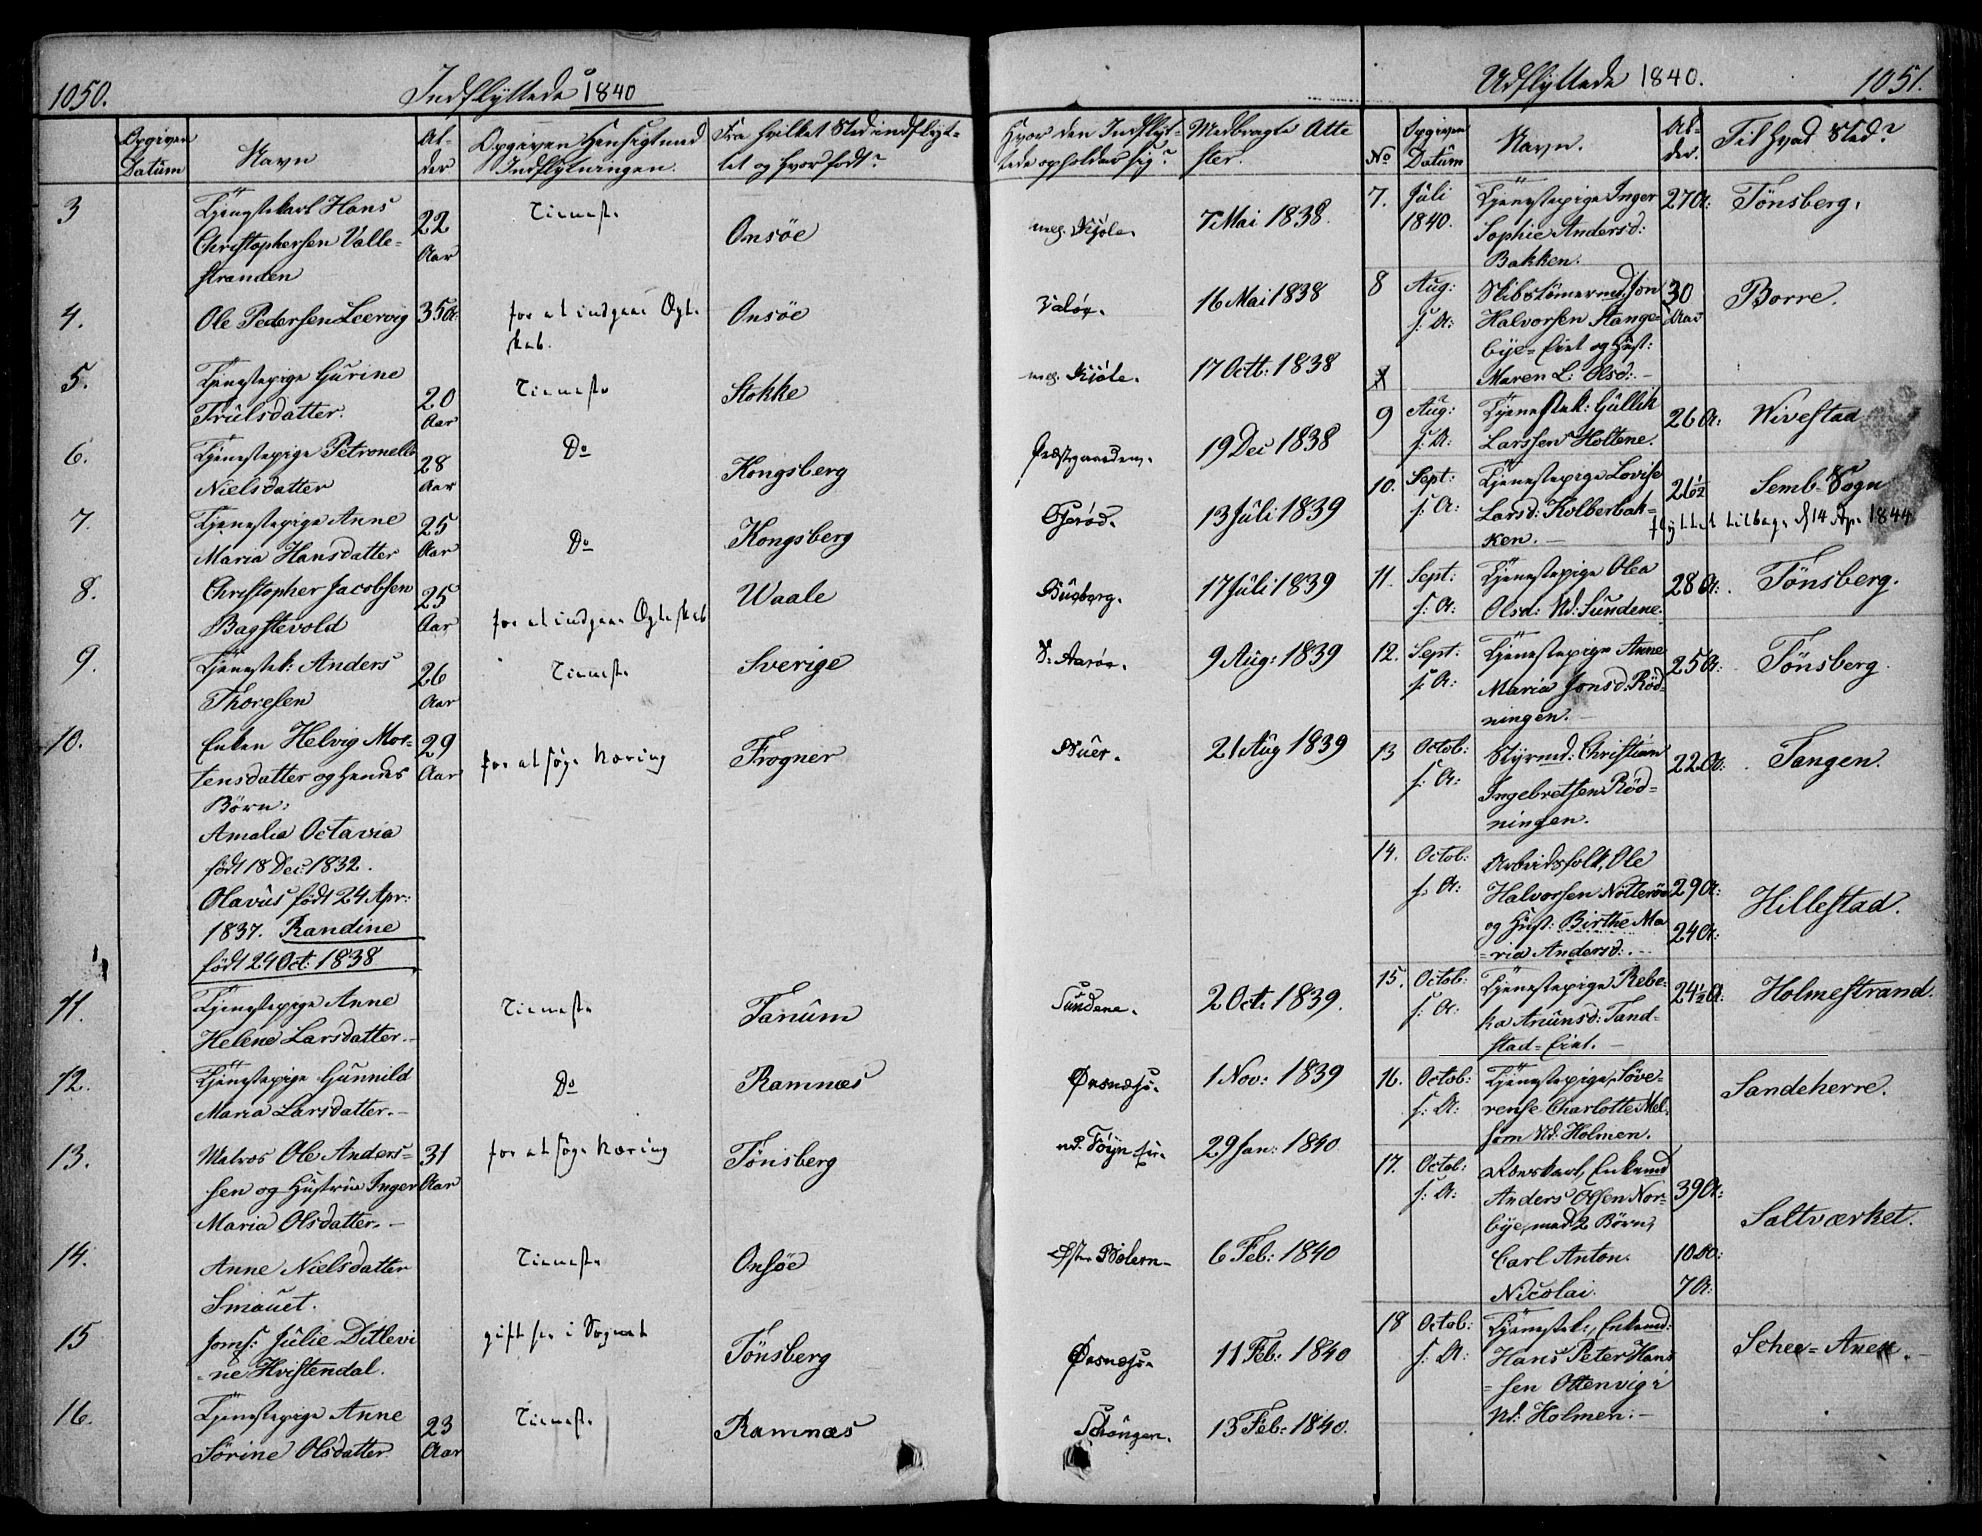 1050.
Indflyttede 1840
Opgiven Datum
Navn
Alder
Opgiven Hensigt med Indflytningen.
Fra hvilket Sted indflyttet og hvor født?
Hvor den Indflyttede opholder sig?
Medbragte Attester.
3
Tjenestekarl Hans
Christophersen Valle-
stranden
22 Aar
Tieneste
Onsöe
Kjøle.
7 Mai 1838.
4.
Ole Pedersen Leervig
35 A:
for at indgaae Ægte-
skab.
Onsöe
Valøe.
16 Mai 1838
5.
Tjenestepige Gurine
Trulsdatter.
20 Aar
Tieneste
Stokke
Kjøle.
17 Octb: 1838
6.
Tjenestepige Petronelle
Nielsdatter
28 Aar
Do
Kongsberg
Præstgaarden.
19 Dec 1838
7.
Tjenestepige Anne
Maria Hansdatter
25 Aar
Do
Kongsberg
13 Juli 1839
8.
Christopher Jacobsen
Bagstevold
25 Aar
for at indgaae Ægteskab
Waale
Buerberg.
17 Juli 1839
9.
Tjenestek: Anders
Thoresen
26 Aar
Tieneste
Sverige
V: Aarøe.
9 Aug: 1839
10.
Enken Helvig Mor-
tensdatter og hendes
Børn:
Amalia Octavia
født 18 Dec: 1832.
Olavus født 24 Apr:
1837. Randine
født 29 Oct: 1838
29 Aar
for at søge Næring
Frogner
Buer.
21 Aug 1839
11.
Tjenestepige Anne
Helene Larsdatter.-
Tieneste
Tanum
Sundene.
2 Oct: 1839.
12.
Tjenestepige Gunnild
Maria Larsdatter.-
Do
Ramnæs
Ørsnæs.
1 Nov: 1839
13.
Matros Ole Anders-
sen og Hustrue Inger
Maria Olsdatter.-
31 Aar
for at søge Næring
Tønsberg
nd. Føyn
29 Jan: 1840
14.
Anne Nielsdatter
Smauet.
Tieneste
Onsöe
Østre Bolern
6 Feb: 1840
15
Jomf: Julie Ditlevi
-ne Hvistendal.
gift her i Sognet
Tönsberg
Ørsnæs.
11 Feb: 1840
16.
Tjenestepige Anne
Sörine Olsdatter
23 Aar
Tieneste
Ramnæs
13 Feb: 1840.
Udflyttede 1840.
1051.
No
Opgiven Datum
Navn.
Alder.
Til hvad Sted?
7.
Juli 1840.
Tjenestepige Inger
Sophie Andersd:
Bakken.
27 A:
Tönsberg.
8
Aug: s: A:
Skibstömermd. Jon
Halvorsen Stange-
bye-Eiet og Hust:
Maren L: Olsd:-
30 Aar
Borre.
9
Aug: s: A:
Tjenestek: Gullik
Larssen Holtene.
26 A:
Wivestad
10.
Sept: s: A:
Tjenestepige Lovise
Larsd: Kolberbak-
ken.-
21 1/2
Semb-Sogn
flyttet tilbage d 14 Apr 1844
11.
Sept: s: A:
Tjenestepige Olea
Olsd: Nd: Sundene.
28 A:
Tönsberg.
12.
Sept: s: A:
Tjenestepige Anne
Maria Jonsd: Röd-
ningen.-
25 A:
Tönsberg.
13
Octob: s: A:
Styrmd: Christian
Ingebretsen Röd-
ningen.
22 A:
Tangen.
14.
Octob: s: A:
Arbeidsfolk, Ole
Halvorsen Nötteröe
og Hust: Birthe Ma
-ria Andersd:.-
29 A:
24 A:
Hillestad.
15.
Octob: s: A:
Tjenestepige Rebe-
ka Anunsd: Tand-
stad-Eiet.-
24 1/2 A:
Holmestrand.
16.
Octob: s: A:
Tjenestepige, Söve-
rense Charlotte Mel-
som Nd: Holmen.
Sandeherre.
17.
Octob: s: A:
Enkemd
Anders Olsen Nor-
bye, med 2 Børn,
Carl Anton.
Nicolai.
39 A:
10 A:
7 A:
Saltværket.
18
Octob: s: A:
Tjenestek, Enkemd:
Hans Peter Hans
-sen Ottenvig i
Nd: Holmen.-